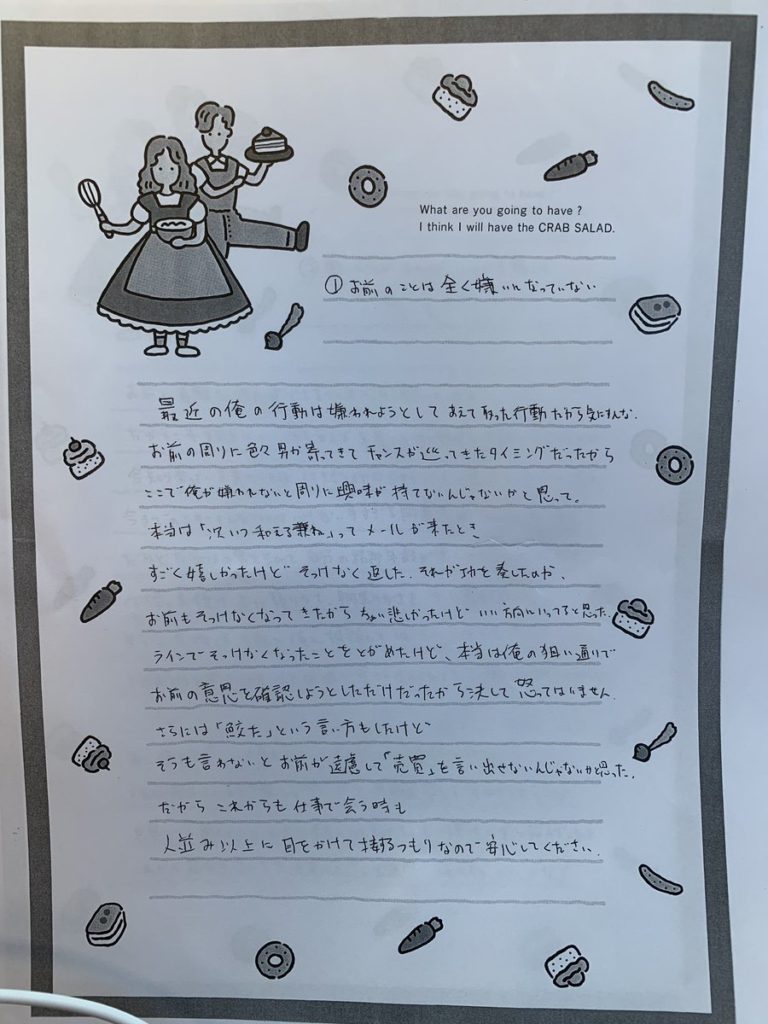 What are you going to have ?
I think I will have the CRAB SALAD.
①お前のことは全く嫌いになっていない
最近の俺の行動は嫌われようとしてあえて取った行動だから気にすんな.
お前の周りに色々男が寄ってきてチャンスが巡ってきたタイミングだったから
ここで俺が嫌われないと周りに興味が持てないんじゃないかと思って。
本当は「次いつ和える兼ね」ってメールが来たとき
すごく嬉しかったけどそっけなく返した. それが功を奏したのか、
お前もそっけなくなってきたから ちょい悲しかったけど いい方向いってると思った.
ラインでそっけなくなったことをとがめたけど、本当は俺の狙い通りで
お前の意思を確認しようとしただけだったから決して怒ってはいません.
さらには「鮫た」という言い方もしたけど
そうも言わないとお前が遠慮して「売買」を言い出せないんじゃないかと思った.
だからこれからも仕事で会う時も
人並み以上に目をかけて接するつもりなので安心してください.